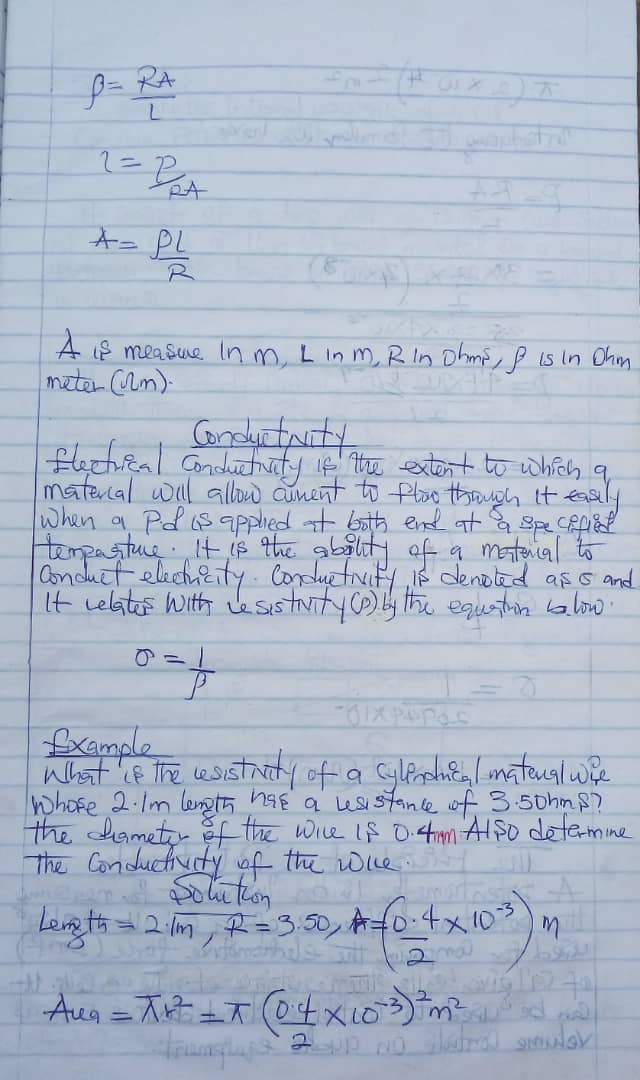 ρ = RA/L
l = P/RA
A = ρL/R
A is measure in m, L in m, R in Ohms, ρ is in Ohm
meter (Ωm).
Conductivity
Electrical Conductivity is the extent to which a
material will allow current to flow through it easily
when a Pd is applied at both end at a specified
temperature. It is the ability of a material to
Conduct electricity. Conductivity is denoted as σ and
It relates with resistivity (ρ) by the equation below.
σ = 1/ρ
Example
What is the resistivity of a cylindrical material wire
whose 2.1m length has a resistance of 3.5Ohms?
the diameter of the wire is 0.4mm Also determine
the Conductivity of the wire.
Solution
Length = 2.1m, R = 3.50, A = (0.4/2 × 10⁻³) m
Area = πr² = π (0.4/2 × 10⁻³)² m²